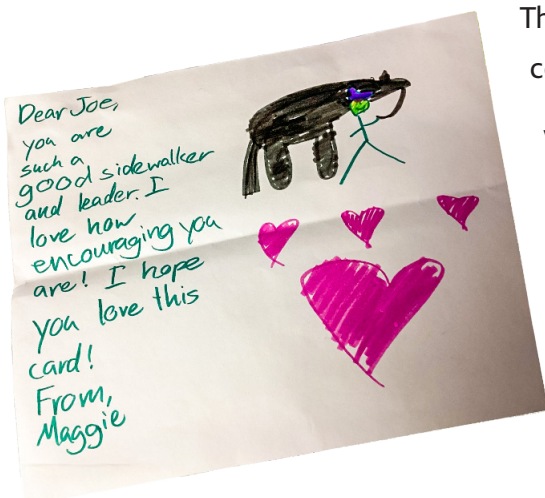 Dear Joe,
you are
such a
good sidewalker
and leader. I
love how
encouraging you
are! I hope
you love this
card!
From,
Maggie
Th